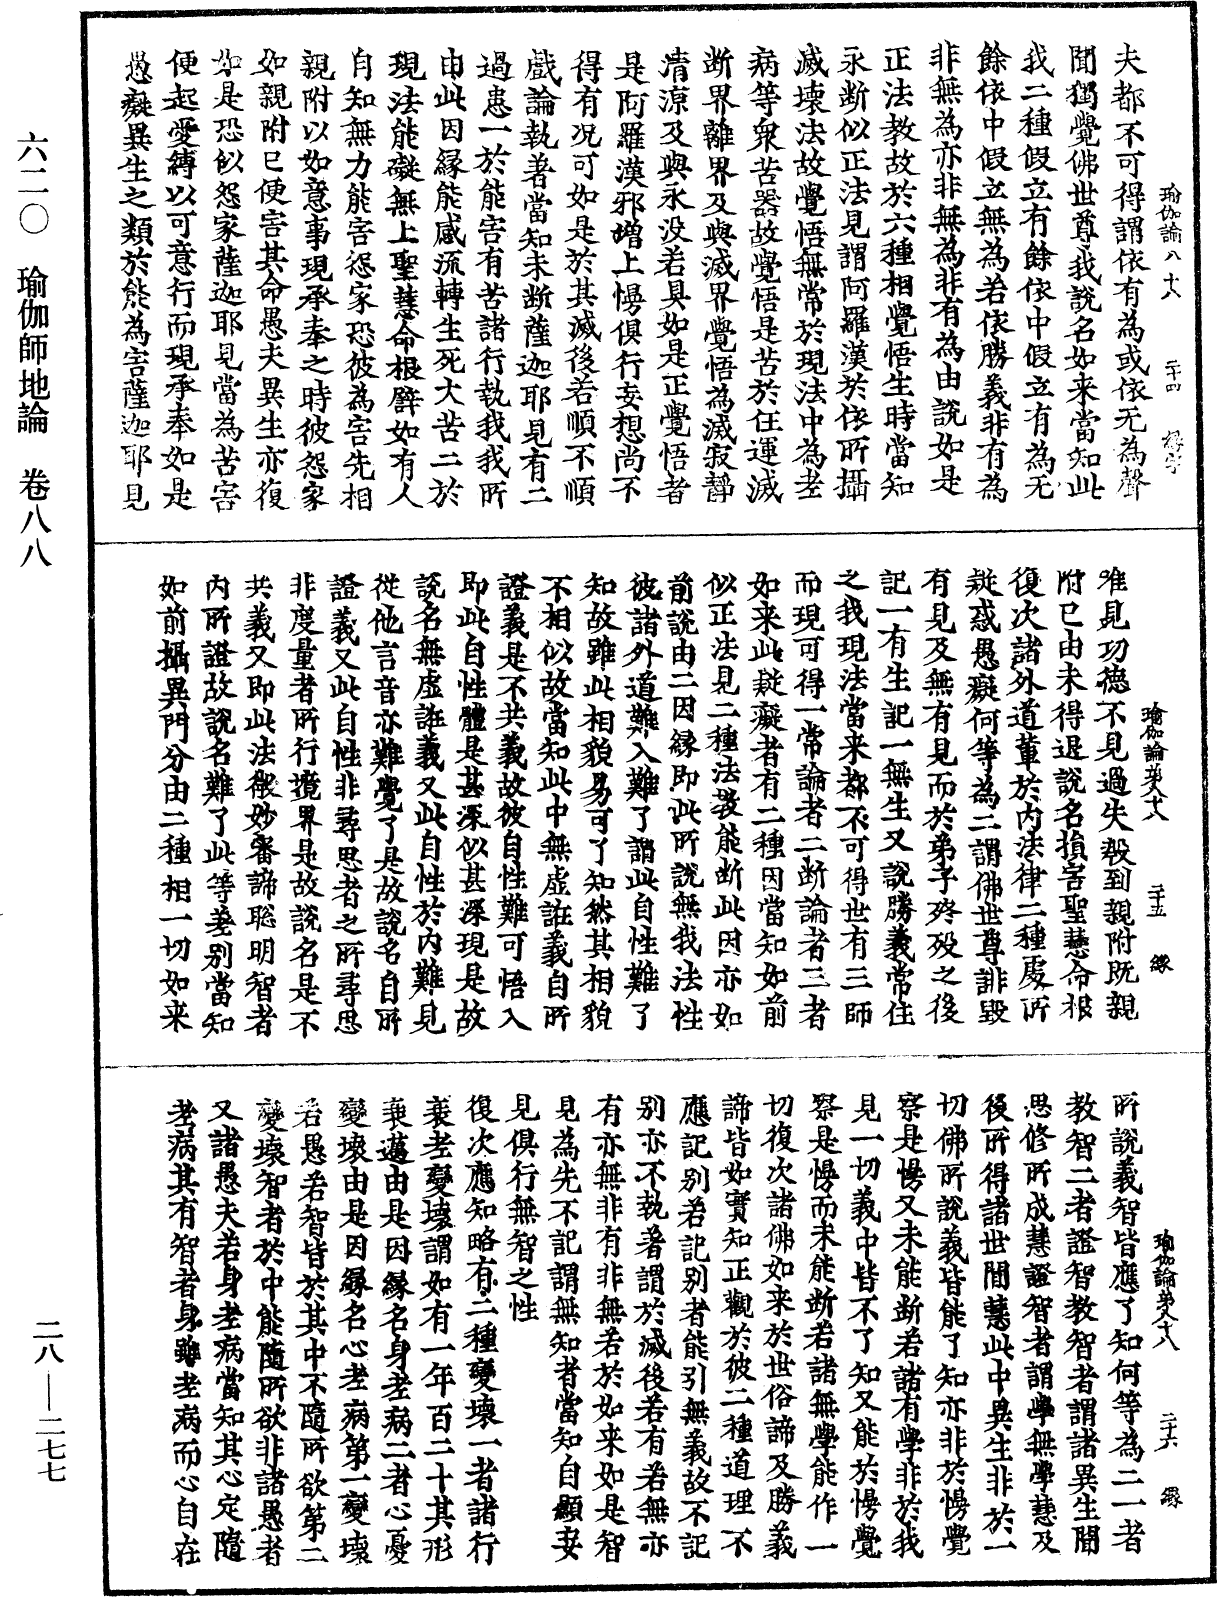 夫都不可得謂依有為或依无為聲
聞獨覺佛世尊我說名如来當知此
我二種假立有餘依中假立有為无
餘依中假立無為若依勝義非有為
非無為亦非無為非有為由說如是
正法教故於六種相覺悟生時當知
永断似正法見謂阿羅漢於依所攝
滅壞法故覺悟無常於現法中為老
病等衆苦器故覺悟是苦於任運滅
断界離界及與滅界覺悟為滅寂静
清凉及與永没若具如是正覺悟者
是阿羅漢邪增上慢俱行妄想尚不
得有况可如是於其滅後若順不順
戲論執著當知未断薩迦耶見有二
過患一於能害有苦諸行執我我所
由此因縁能感流轉生死大苦二於
現法能礙無上聖慧命根譬如有人
自知無力能害怨家恐彼為害先相
親附以如意事現承奉之時彼怨家
如親附已便害其命愚夫異生亦復
如是恐似怨家薩迦耶見當為苦害
便起愛縛以可意行而現承奉如是
愚癡異生之類於能為害薩迦耶見
瑜伽論八十八 二十四 縁字
唯見功德不見過失殷到親附既親
附已由未得退說名損害聖慧命根
復次諸外道輩於内法律二種處所
疑惑愚癡何等為二謂佛世尊誹毀
有見及無有見而於弟子終殁之後
記一有生記一無生又說勝義常住
之我現法當来都不可得世有三師
而現可得一常論者二断論者三者
如来此疑癡者有二種因當知如前
似正法見二種法教能断此因亦如
前說由二因縁即此所說無我法性
彼諸外道難入難了謂此自性難了
知故雖此相貌易可了知然其相貌
不相似故當知此中無虚誑義自所
證義是不共義故彼自性難可悟入
即此自性體是甚深似甚深現是故
說名無虚誑義又此自性於内難見
從他言音亦難覺了是故說名自所
證義又此自性非尋思者之所尋思
非度量者所行境界是故說名是不
共義又即此法微妙審諦聡明智者
内所證故說名難了此等差别當知
如前攝異門分由二種相一切如来
瑜伽論苐八十八 二十五 縁
所說義智皆應了知何等為二一者
教智二者證智教智者謂諸異生聞
思修所成慧證智者謂學無學慧及
後所得諸世間慧此中異生非於一
切佛所說義皆能了知亦非於慢覺
察是慢又未能断若諸有學非於我
見一切義中皆不了知又能於慢覺
察是慢而未能断若諸無學能作一
切復次諸佛如来於世俗諦及勝義
諦皆如實知正觀於彼二種道理不
應記别若記别者能引無義故不記
别亦不執著謂於滅後若有若無亦
有亦無非有非無若於如来如是智
見為先不記謂無知者當知自顯妄
見俱行無智之性
復次應知略有二種變壞一者諸行
衰老變壞謂如有一年百二十其形
衰邁由是因縁名身老病二者心憂
變壞由是因縁名心老病第一變壞
若愚若智皆於其中不隨所欲第二
變壞智者於中能隨所欲非諸愚者
又諸愚夫若身老病當知其心定隨
老病其有智者身雖老病而心自在
瑜伽論苐八十八 二十六 縁
六二〇 瑜伽師地論 卷八八
二八—二七七